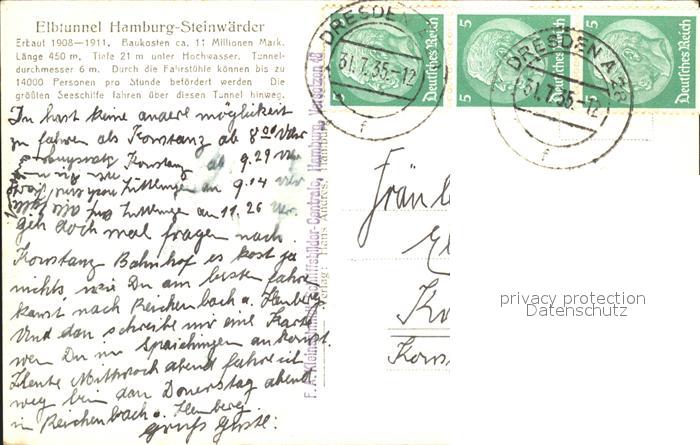 Elbtunnel Hamburg-Steinwärder
Erbaut 1908—1911. Baukosten ca. 11 Millionen Mark.
Länge 450 m. Tiefe 21 m unter Hochwasser. Tunnel-
durchmesser 6 m. Durch die Fahrstühle können bis zu
14000 Personen pro Stunde befördert werden. Die
größten Seeschiffe fahren über diesen Tunnel hinweg.
Du hast keine andere möglichkeit
zu fahren als Konstanz ab 8 00 Uhr
Konstanz ab 9.29 Uhr
Tüttlingen an 9.04 Uhr
Tuttlingen an 11.26 Uhr.
geh doch mal fragen nach
Konstanz Bahnhof es kost ja
nichts wie Du am besten fahren
kanst nach Reichenbach a. Heuberg
Und dan schreibe mir eine Karte
wen Du in Spaichingen ankomst
Heute Mittwoch abend fahre ich
weg bin dan Donerstag abend
in Reichenbach a. Heuberg.
gruß
Deutsches Reich
5
Deutsches Reich
5
Deutsches Reich
5
DRESDEN A
31.7.35.-12
f
DRESDEN A 28
31.7.35.-12
f
Verlag: Hans Andres, Hamburg
Fräule
Ko
Kons
privacy protection
Datenschutz